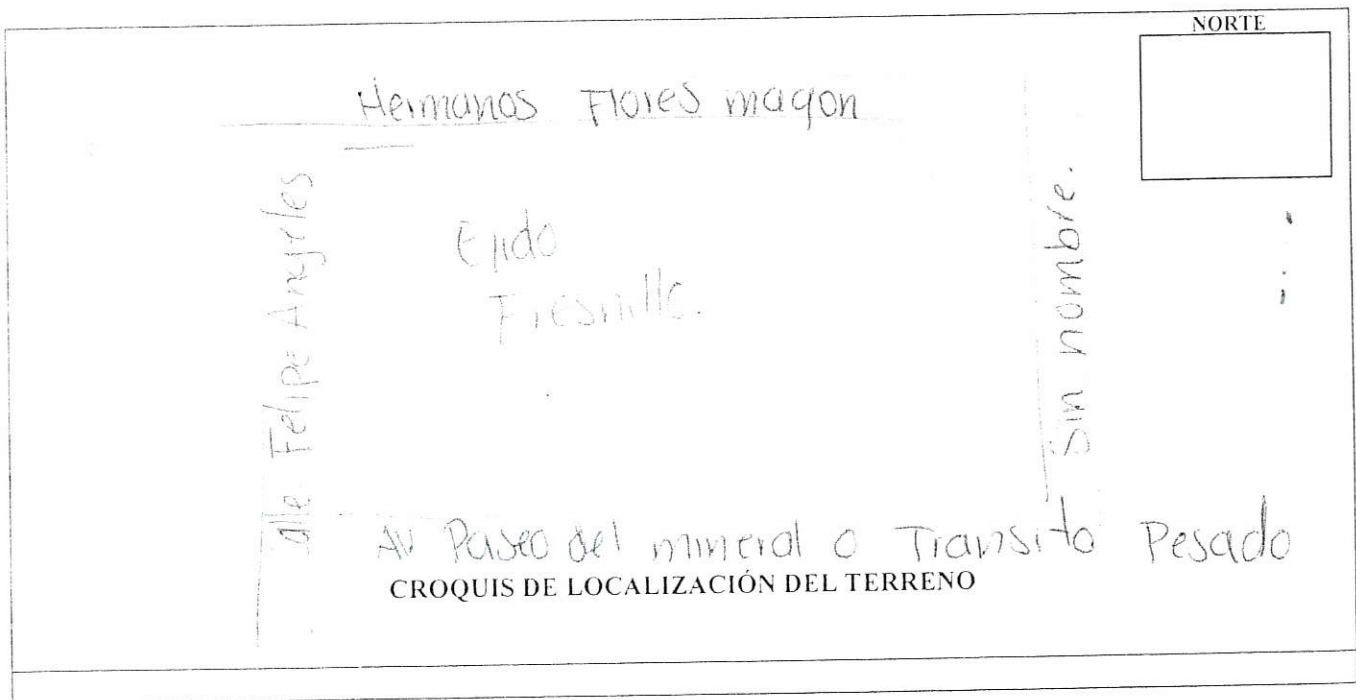 NORTE
Hermanos Flores magon
alle Felipe Angeles
Ejido
Fresnillo.
Sin nombre.
Av Paseo del mineral o Transito Pesado
CROQUIS DE LOCALIZACIÓN DEL TERRENO